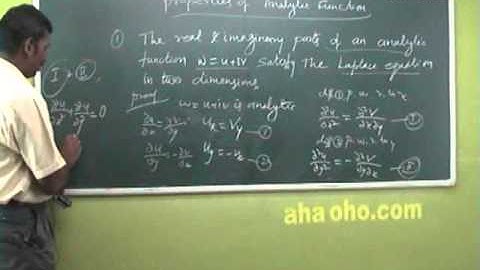 properties of Analytic Function
① The real & imaginary parts of an analytic
function w = u+iv satisfy the Laplace equation
in two dimensions.
proof
w = u+iv is analytic
∂u/∂x = ∂v/∂y u_x = v_y —①
∂u/∂y = -∂v/∂x u_y = -v_x —②
diff ① p. w. r. to x
∂²u/∂x² = ∂²v/∂x∂y —Ⓘ
diff ② p. w. r. to y
∂²u/∂y² = -∂²v/∂y∂x —Ⓘ Ⓘ
Ⓘ + Ⓘ Ⓘ
∂²u/∂x² + ∂²u/∂y² = 0
aha oho.com